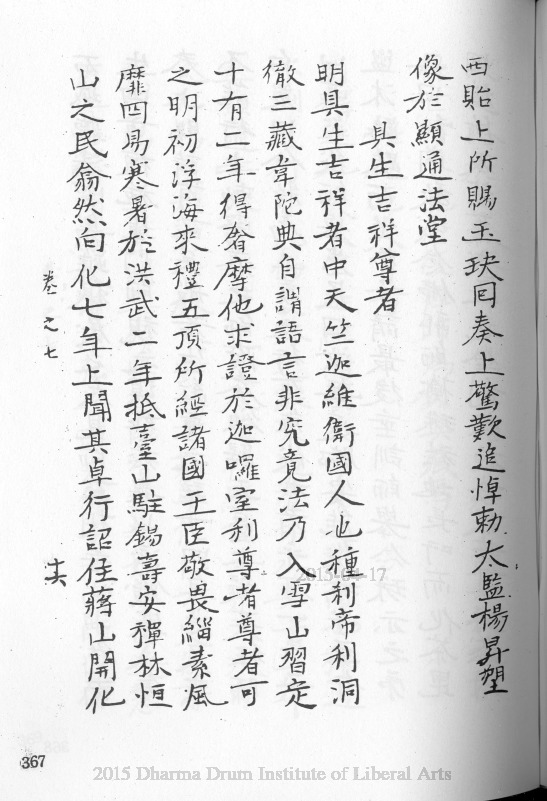 西貽上所賜玉玦囘奏上驚歎追悼勅太監楊昇塑
像於顯通法堂
具生吉祥尊者
明具生吉祥者中天竺迦維衛國人也種利帝利洞
徹三藏韋陀典自謂語言非究竟法乃入雪山習定
十有二年得奢摩他求證於迦囉室利尊者尊者可
之明初浮海來禮五頂所經諸國王臣敬畏緇素風
靡四易寒暑於洪武二年抵臺山駐錫壽安禪林恒
山之民翕然向化七年上聞其卓行詔住蔣山開化
卷之七
367
2015-04-17
2015 Dharma Drum Institute of Liberal Arts